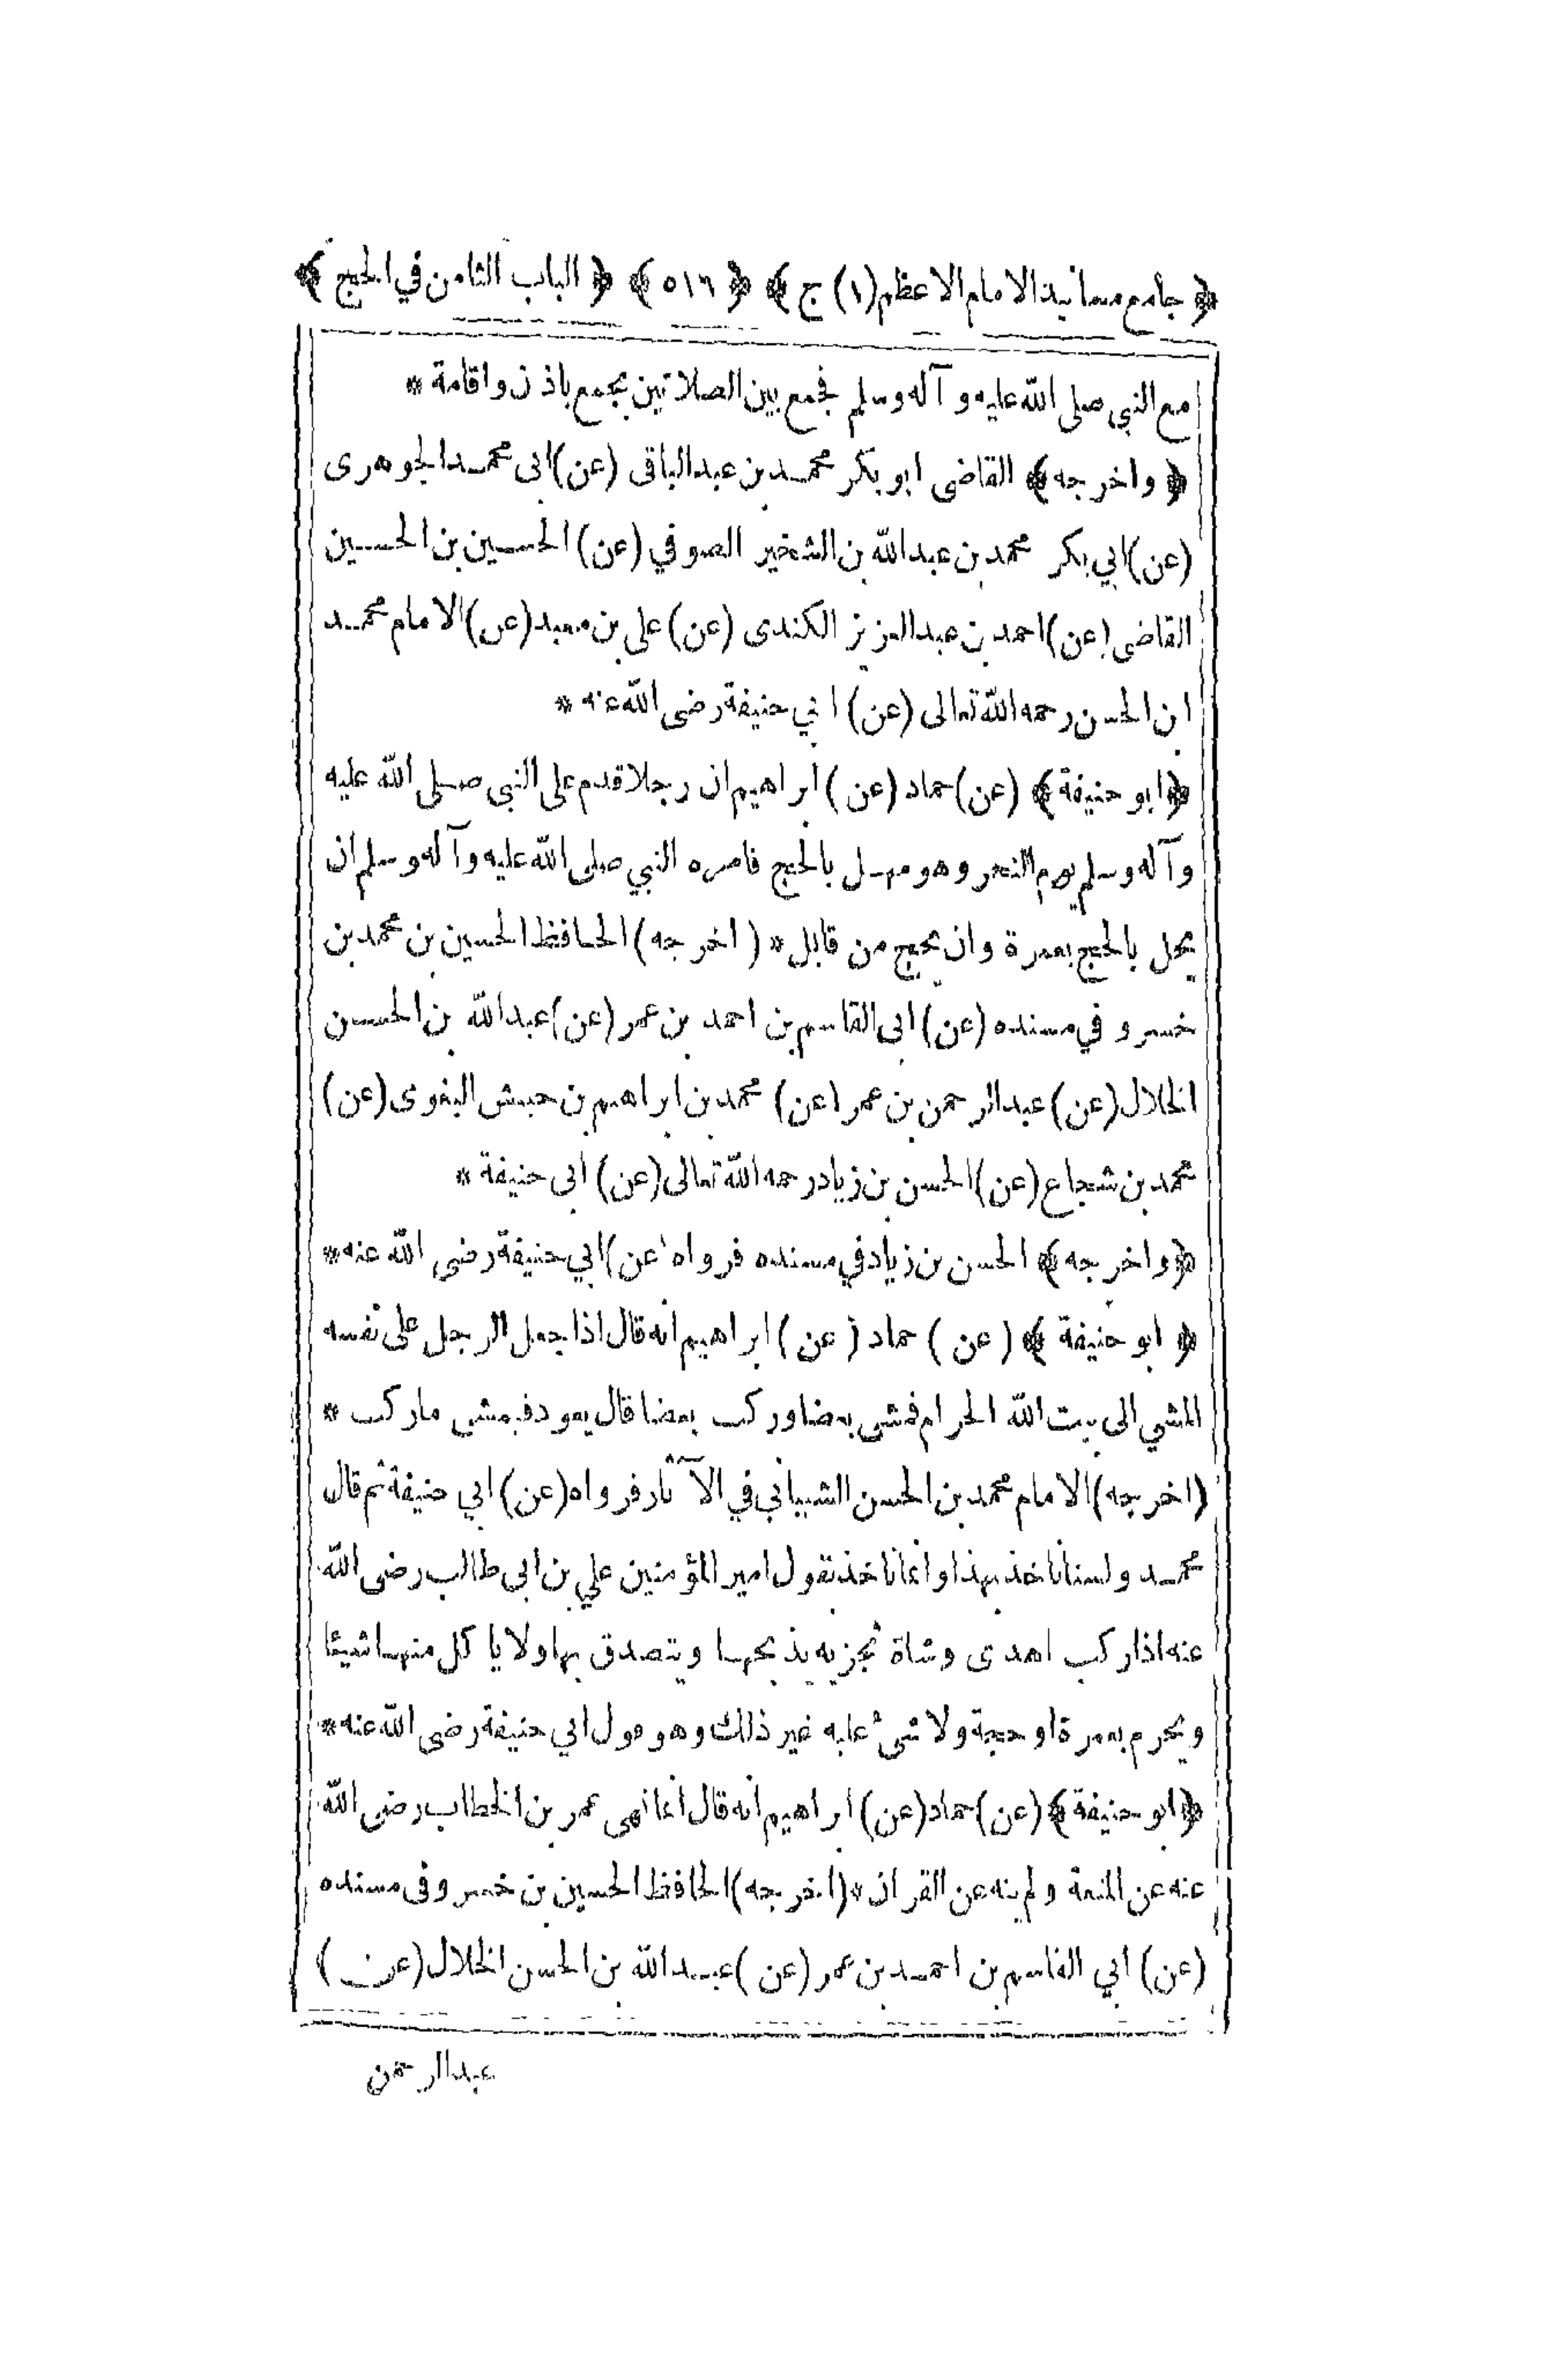 ﴿ جامع مسانيد الامام الاعظم (١) ج ﴾ ﴿ ٥١٦ ﴾ ﴿ الباب الثامن في الحج ﴾
مع النبي صلى الله عليه وآله وسلم فجمع بين الصلاتين بجمع باذن واقامة *
﴿ واخرجه ﴾ القاضي ابو بكر محمد بن عبد الباقى (عن) ابى محمد الجوهرى
(عن) ابي بكر محمد بن عبد الله بن الشخير الصوفي (عن) الحسين بن الحسين
القاضى (عن) احمد بن عبد العزيز الكندى (عن) على بن معبد (عن) الامام محمد
ان الحسن رحمه الله تعالى (عن) ابي حنيفة رضى الله عنه *
﴿ ابو حنيفة ﴾ (عن) حماد (عن) ابراهيم ان رجلا قدم على النبي صلى الله عليه
وآله وسلم يوم النحر وهو مهل بالحج فامره النبي صلى الله عليه وآله وسلم ان
يحل بالحج بعمرة وان يحج من قابل * (اخرجه) الحافظ الحسين بن محمد بن
خسرو في مسنده (عن) ابى القاسم بن احمد بن عمر (عن) عبد الله بن الحسن
الخلال (عن) عبد الرحمن بن عمر (عن) محمد بن ابراهيم بن حبيش البغوى (عن)
محمد بن شجاع (عن) الحسن بن زياد رحمه الله تعالى (عن) ابى حنيفة *
﴿ واخرجه ﴾ الحسن بن زياد في مسنده فرواه (عن) ابي حنيفة رضى الله عنه *
﴿ ابو حنيفة ﴾ (عن) حماد (عن) ابراهيم انه قال اذا جعل الرجل على نفسه
المشي الى بيت الله الحرام فمشى بعضا وركب بعضا قال يعود فيمشى ما ركب *
(اخرجه) الامام محمد بن الحسن الشيباني في الآثار فرواه (عن) ابي حنيفة ثم قال
محمد ولسنا ناخذ بهذا وانما ناخذ بقول امير المؤمنين علي بن ابى طالب رضى الله
عنه اذا ركب اهدى وشاة تجزيه يذبحها ويتصدق بها ولا ياكل منها شيئا
ويحرم بعمرة او حجة ولا شئ عليه غير ذلك وهو قول ابي حنيفة رضى الله عنه *
﴿ ابو حنيفة ﴾ (عن) حماد (عن) ابراهيم انه قال انما نهى عمر بن الخطاب رضى الله
عنه عن المتعة ولم ينه عن القران * (اخرجه) الحافظ الحسين بن خسرو فى مسنده
(عن) ابي القاسم بن احمد بن عمر (عن) عبد الله بن الحسن الخلال (عن)
عبد الرحمن